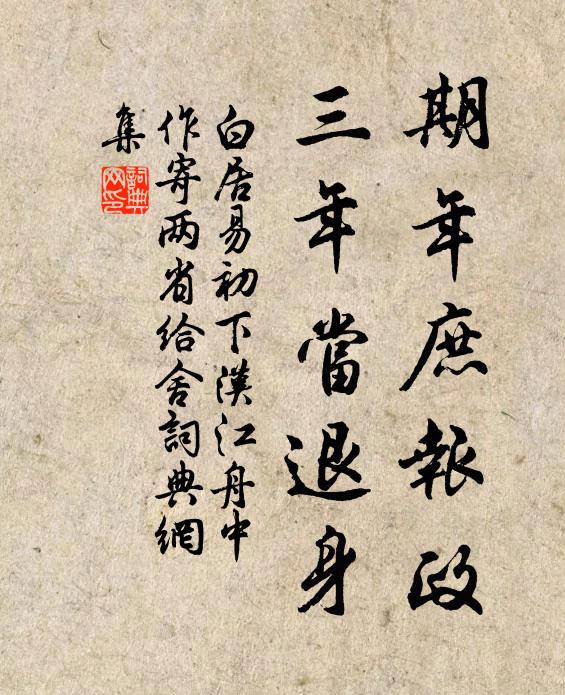 期年庶報政
三年當退身
白居易初下漢江舟中
作寄两省給舍詞典網
集
詞典
网印